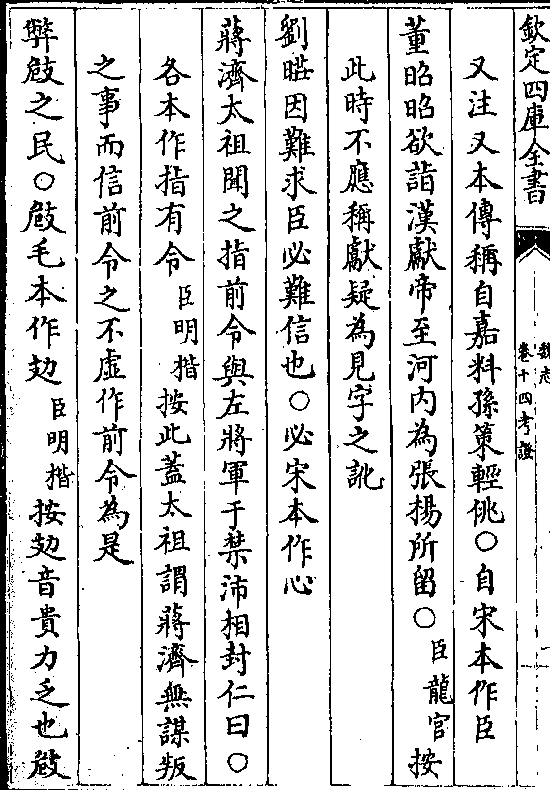 欽定四庫全書
魏志
卷十四考證
又注又本傳稱自嘉料孫策輕佻○自宋本作臣
董昭昭欲詣漢獻帝至河内為張揚所留○臣龍官按
此時不應稱獻疑為見字之訛
劉曄因難求臣必難信也○必宋本作心
蔣濟太祖聞之指前令與左將軍于禁沛相封仁曰○
各本作指有令臣明楷按此蓋太祖謂蔣濟無謀叛
之事而信前令之不虛作前令為是
弊㩻之民○㩻毛本作攰臣明楷按攰音貴力乏也㩻